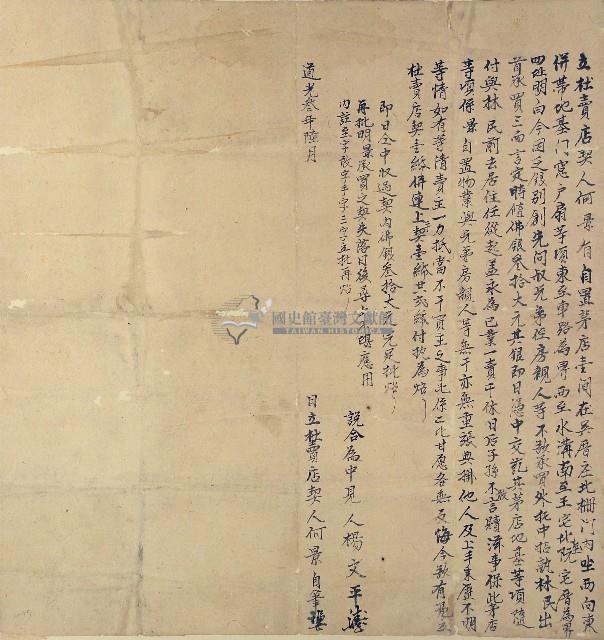 立杜賣店契人何景有自置茅店壹間在吳厝庄北柵門內坐西向東
併帶地基門窓戶扇等項東至車路為界西至水溝南至王宅北阮宅厝為界
四址明白今因乏銀別創先問叔兄弟侄房親人等不欲承買外托中招就林民出
首承買三面言定時值佛銀叁拾大元其銀即日憑中交訖其茅店地基等項隨
付與林民前去居住任從起盖永為己業一賣千休日后子孫不敢言贖滋事保此茅店
等項係景自置物業與兄弟房親人等無干亦無重張典掛他人及上手來歷不明
等情如有等情賣主一力抵當不干買主之事此係二比甘愿各無反悔今欲有憑立
杜賣店契壹紙併連上契壹紙共貳紙付执為炤
即日仝中收過契內佛銀叁拾大元足批炤
再批明景承買之契失落日後尋出不堪應用
內註至字敢字手字三字立批再炤
道光叁年陸月
說合為中見人楊文平
日立杜賣店契人何景自筆
國史館臺灣文獻館
TAIWAN HISTORICA